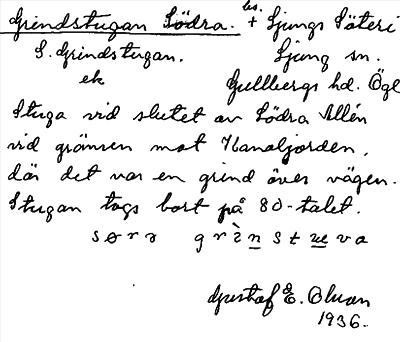 Grindstugan Södra. bs. + Ljungs Säteri
S. Grindstugan. Ljung sn.
ek Gullbergs hd. Ögl
Stuga vid slutet av Södra Allén
vid gränsen mot Kanaljorden,
där det var en grind över vägen.
Stugan togs bort på 80-talet.
sørə grènstueva
Gustaf E. Olson
1936.